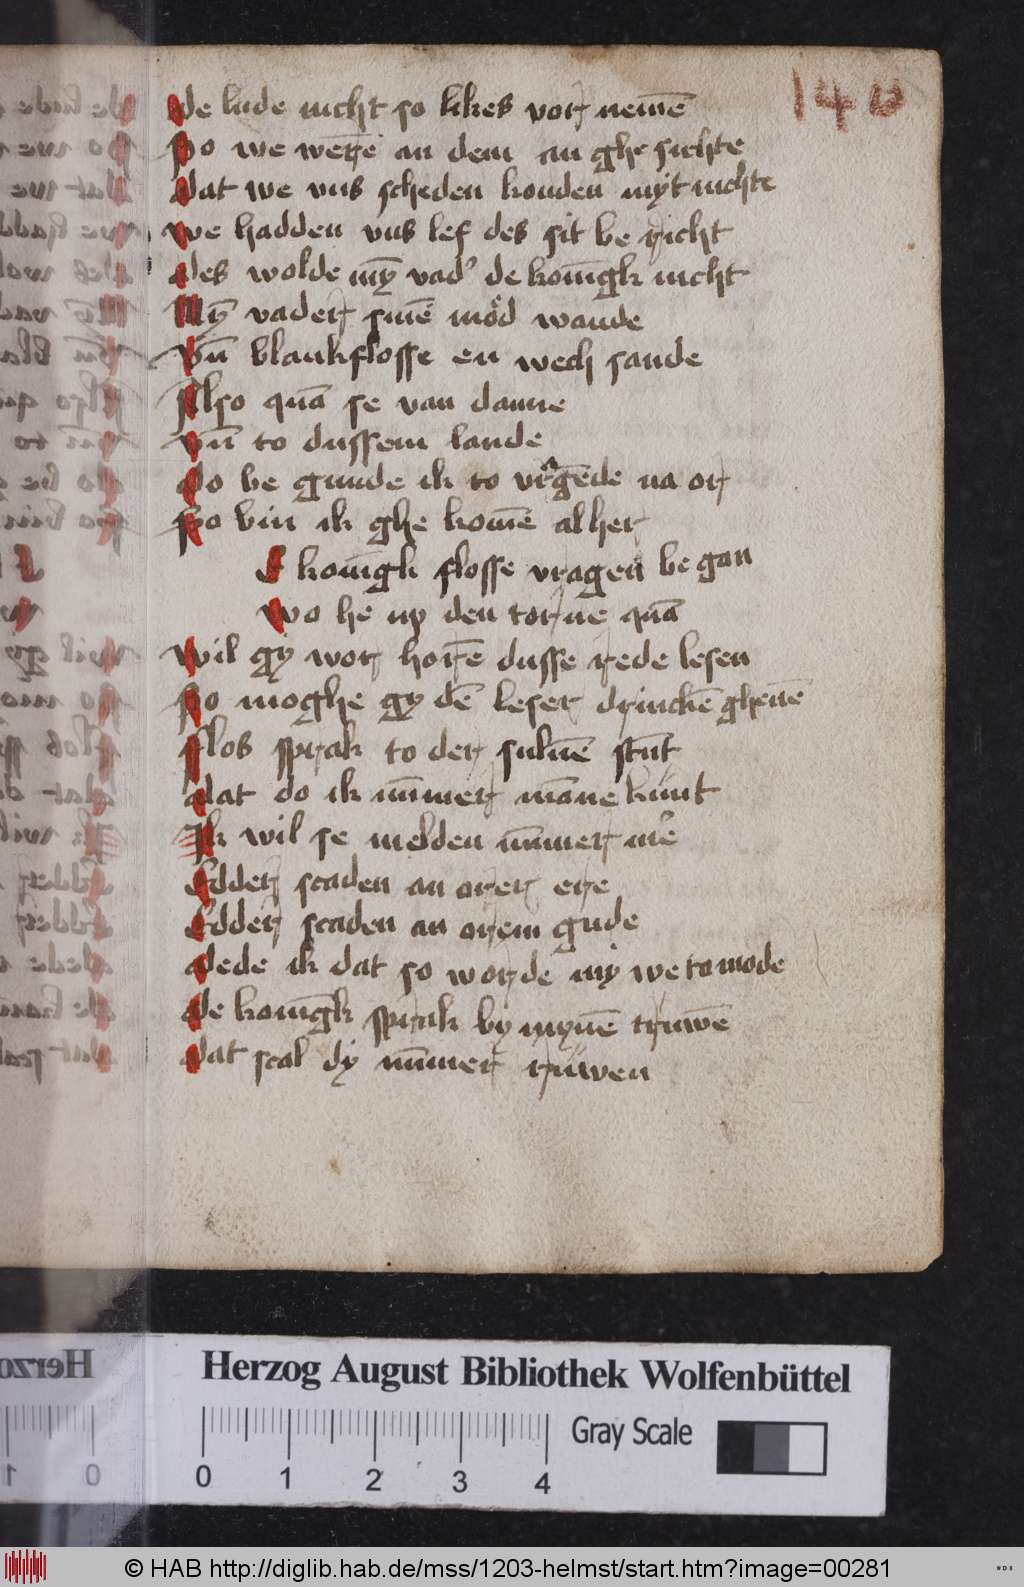 140
de lude nicht so likes vor nemē
So we werē an dem an ghe sichte
dat we vns scheden konden myt nichte
we hadden vns lef des sit be richt
des wolde mȳ vad' de konīgk nicht
Mȳ vader sinē mod wande
vn̄ blankflosse en wech sande
Also quā se van danne
vn̄ to dussem lande
do be gunde ik to vragēde na or
So bin ik ghe komē al her
E konīgk flosse vragen be gan
wo he up den torne quā
wil gy wor horē dusse rede lesen
So moghe gy dē leser drinckē gheuē
flos sprak to der suluē stūt
dat do ik nūmer māne kunt
Ik wil se melden nūmer me
Edder scaden an orer ere
Edder scaden an orem gude
dede ik dat so worde my we to mode
de konīgk sprak by mynē truwē
dat scal dy nūmer ruwen
Herzog August Bibliothek Wolfenbüttel
Gray Scale
0 1 2 3 4
© HAB http://diglib.hab.de/mss/1203-helmst/start.htm?image=00281